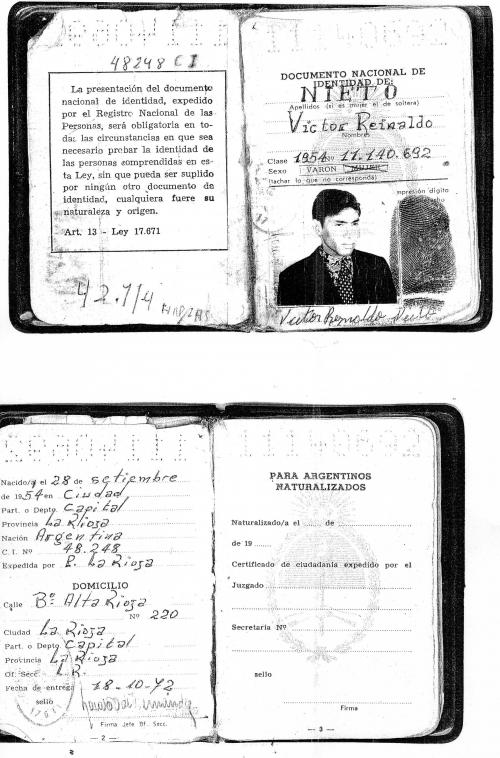 48248 C I
La presentación del documento
nacional de identidad, expedido
por el Registro Nacional de las
Personas, será obligatoria en to-
das las circunstancias en que sea
necesario probar la identidad de
las personas comprendidas en es-
ta Ley, sin que pueda ser suplido
por ningún otro documento de
identidad, cualquiera fuere su
naturaleza y origen.
Art. 13 - Ley 17.671
DOCUMENTO NACIONAL DE
IDENTIDAD DE:
NIETO
Apellidos (si es mujer el de soltera)
Victor Reinaldo
Nombres
Clase 1954 Nº 11.140.692
Sexo VARON MUJER
(tachar lo que no corresponda)
mpresión dígito
Victor Reinaldo Nieto
Nacido/a el 28 de setiembre
de 1954 en Ciudad
Part. o Depto. Capital
Provincia La Rioja
Nación Argentina
C. I. Nº 48.248
Expedida por P. La Rioja
DOMICILIO
Calle Bº Alta Rioja
Nº 220
Ciudad La Rioja
Part. o Depto Capital
Provincia La Rioja
Of. Secc. L.R.
Fecha de entrega 18-10-72
sello
Firma Jefe Of. Secc.
— 2 —
PARA ARGENTINOS
NATURALIZADOS
Naturalizado/a el ...... de
de 19
Certificado de ciudadanía expedido por el
Juzgado
Secretaría Nº
sello
Firma
— 3 —